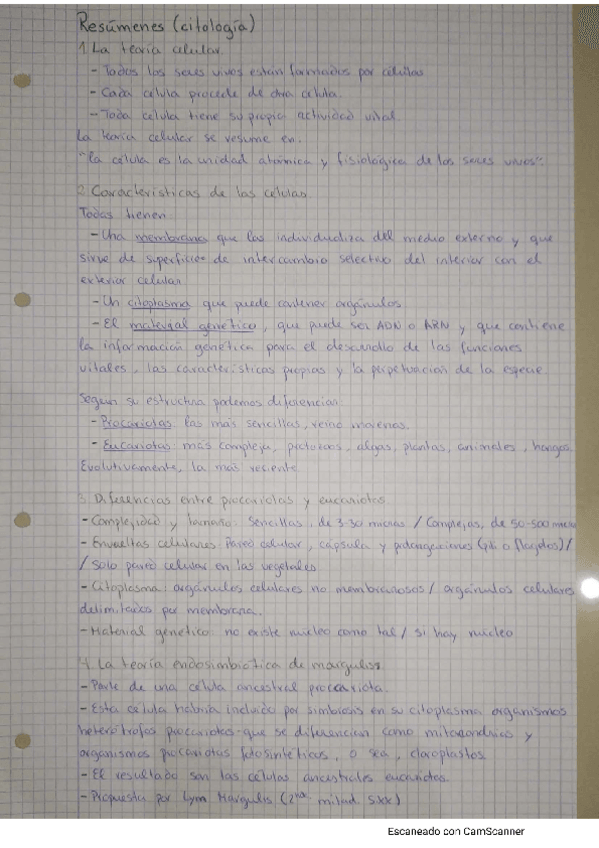 Resúmenes (citología)
1. La teoría celular
- Todos los seres vivos están formados por células
- Cada célula procede de otra célula.
- Toda célula tiene su propia actividad vital.
La teoría celular se resume en:
"la célula es la unidad atómica y fisiológica de los seres vivos".
2. Características de las células
Todas tienen:
- Una membrana que las individualiza del medio externo y que
sirve de superficie de intercambio selectivo del interior con el
exterior celular
- Un citoplasma que puede contener orgánulos
- El material genético, que puede ser ADN o ARN y que contiene
la información genética para el desarrollo de las funciones
vitales, las características propias y la perpetuación de la especie
Según su estructura podemos diferenciar:
- Procariotas: las más sencillas, reino moneras.
- Eucariotas: más compleja, protozoos, algas, plantas, animales, hongos
Evolutivamente, la más reciente
3. Diferencias entre procariotas y eucariotas.
- Complejidad y tamaño: Sencillas, de 3-30 micras / Complejas, de 50-500 micras
- Envueltas celulares: Pared celular, cápsula y (pili o flagelos) /
/ solo pared celular en las vegetales
- Citoplasma: orgánulos celulares no membranosos / orgánulos celulares
delimitados por membrana.
- Material genético: no existe núcleo como tal / si hay núcleo
4. La teoría endosimbiótica de margulis
- Parte de una célula ancestral procariota.
- Esta célula habría incluido por simbiosis en su citoplasma organismos
heterótrofos procariotas que se diferencian como mitocondrias y
organismos procariotas fotosintéticos, o sea, cloroplastos
- El resultado son las células ancestrales eucariotas.
- Propuesta por Lynn Margulis (2nda mitad S.XX)
Escaneado con CamScanner